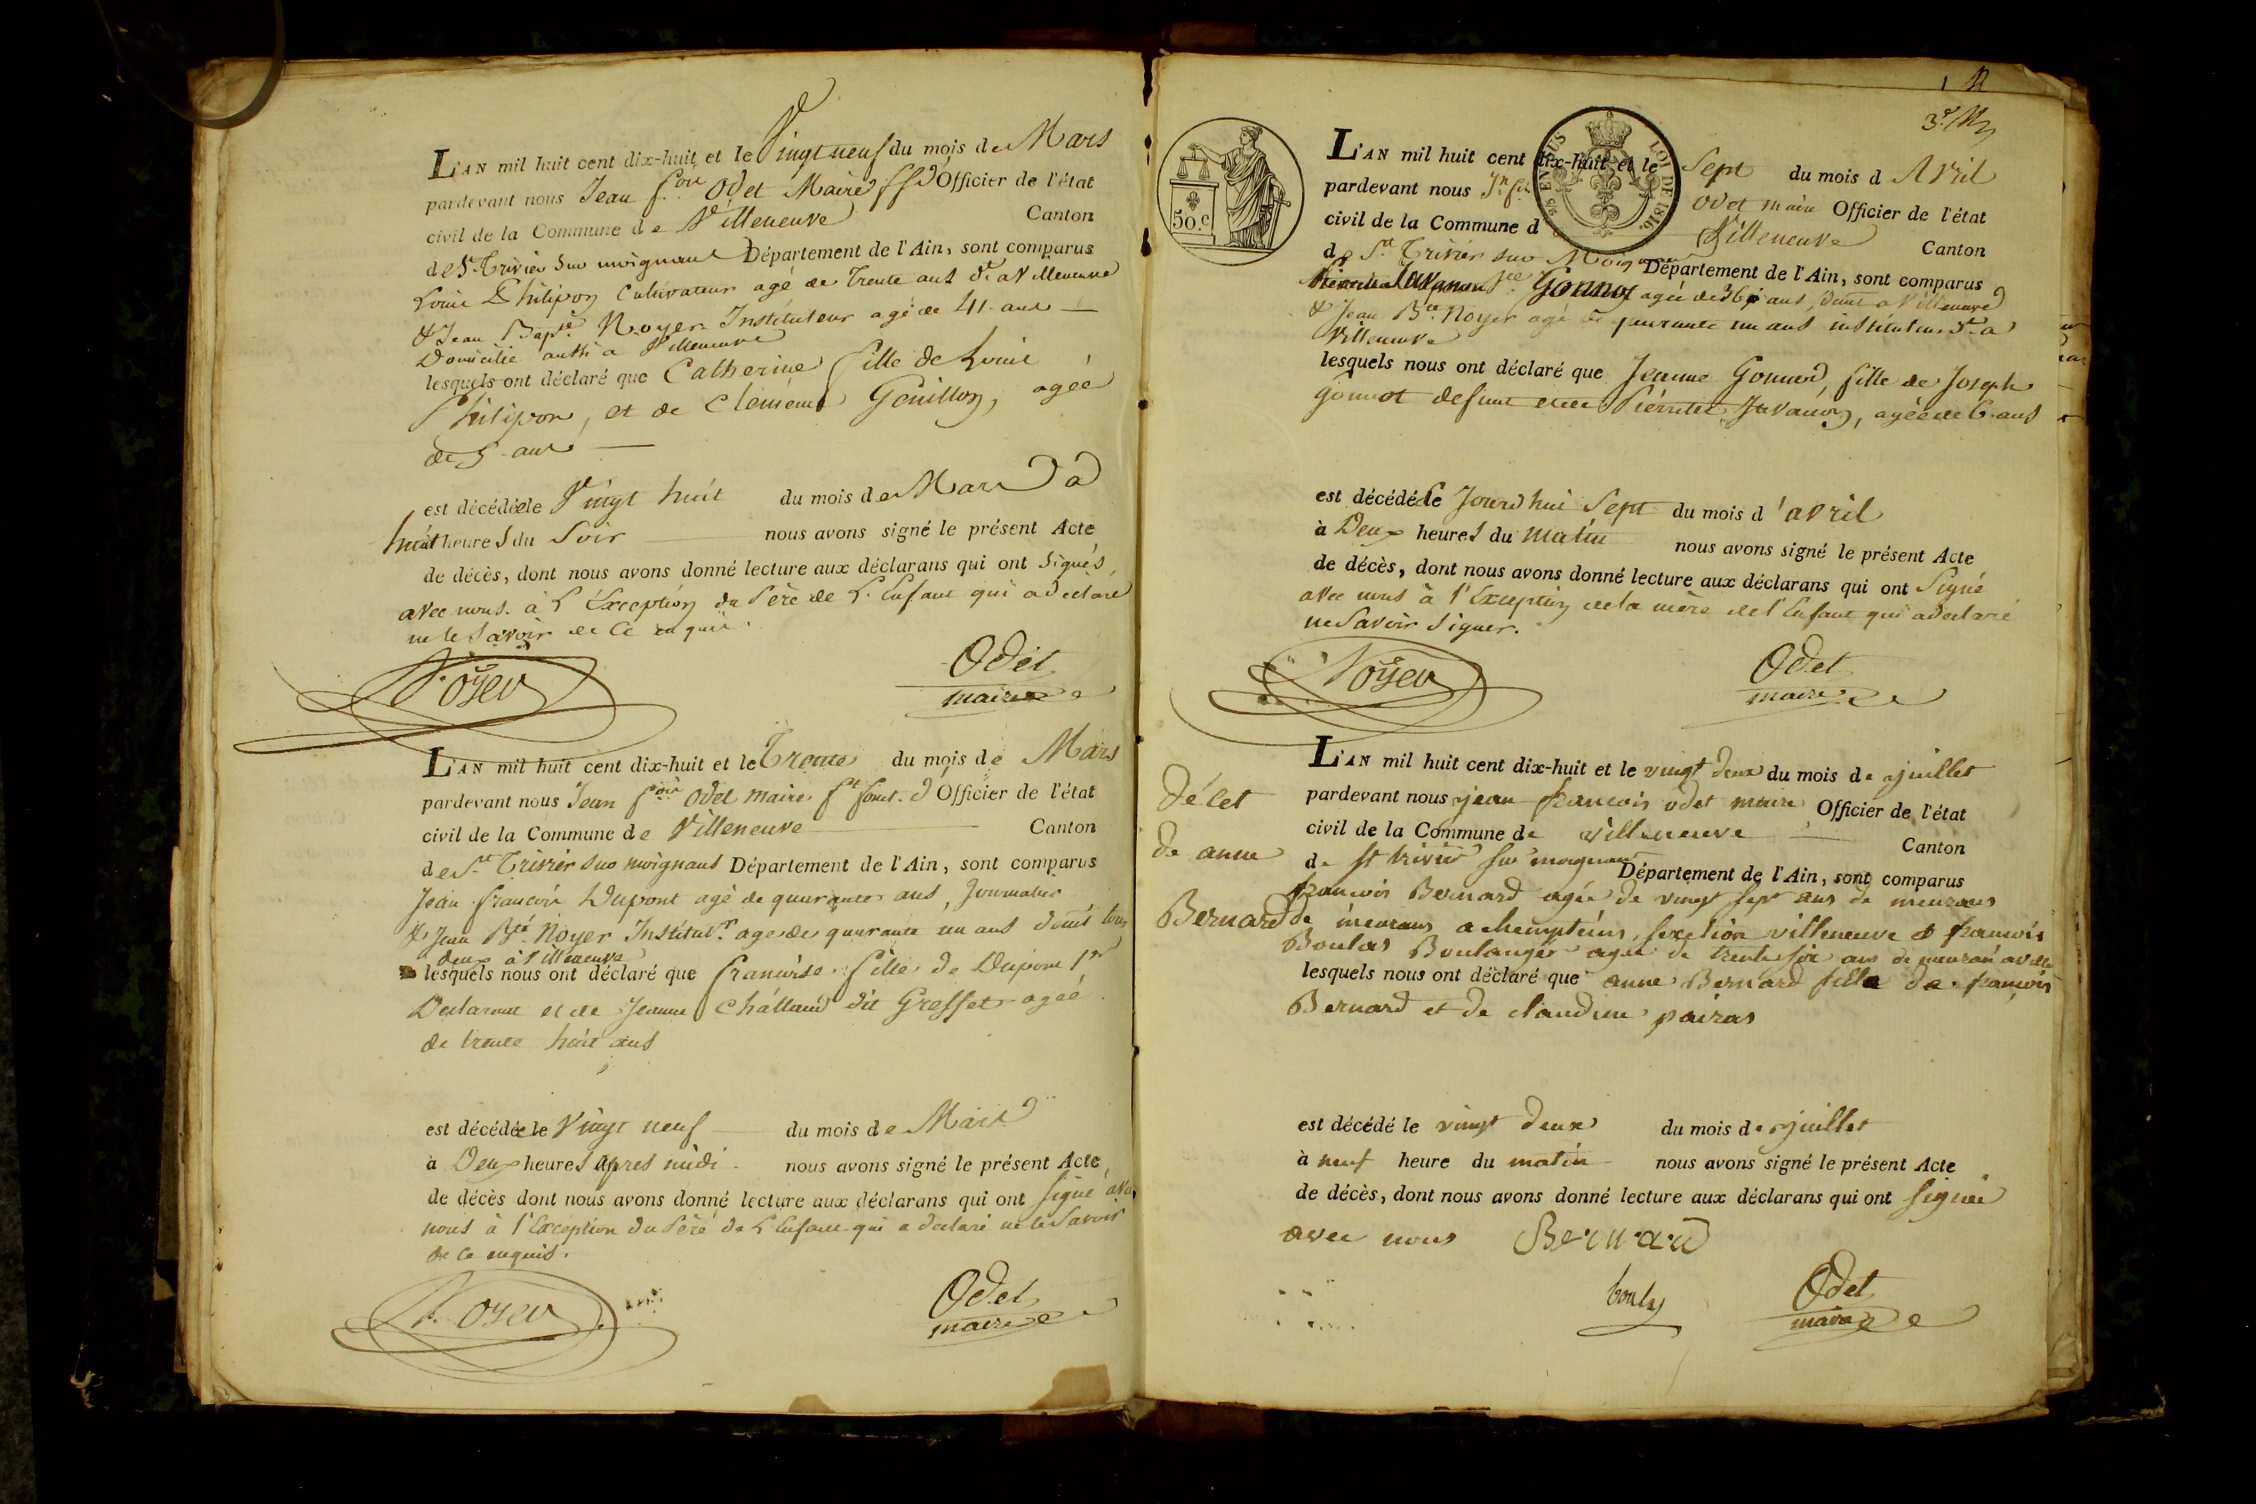 L'AN mil huit cent dix-huit et le Vingt neuf du mois de Mars
pardevant nous Jean f.ois Odet Maire Officier de l'état
civil de la Commune de Villeneuve Canton
de St. Trivier sur moignans Département de l'Ain, sont comparus
Louis Philipon Cultivateur agé de trente ans dt. a Villeneuve
& Jean Bapte Noyer Instituteur agé de 41 ans
Domicilié aussi a Villeneuve
lesquels ont déclaré que Catherine fille de Louis
Philipon, et de Clemence Genillon, agée
de 5 ans
est décédée le Vingt huit du mois de Mars à
huit heures du Soir nous avons signé le présent Acte
de décès, dont nous avons donné lecture aux déclarans qui ont signés
avec nous à L'Exception du Père de L'Enfant qui a declaré
ne le Savoir de Ce enquis.
Noyer
Odet
maire
L'AN mil huit cent dix-huit et le Trente du mois de Mars
pardevant nous Jean f.ois Odet maire Officier de l'état
civil de la Commune de Villeneuve Canton
de St. Trivier sur moignans Département de l'Ain, sont comparus
Jean francois Dupont agé de quarante ans, Journalier
& Jean Bte Noyer Institutr. agé de quarante un ans domts tous
deux à Villeneuve
lesquels nous ont déclaré que francoise fille de Dupont pr
Declarant et de Jeanne Challand dit Gresset agée
de trente huit ans
est décédée le Vingt neuf du mois de Mars
à Deux heures après midi nous avons signé le présent Acte
de décès dont nous avons donné lecture aux déclarans qui ont signé avec
nous à l'Exception du Père de L'Enfant qui a declaré ne le Savoir
de ce enquis.
Noyer
Odet
maire
3e
50.c
EN SUS
LOI DE 1816.
L'AN mil huit cent dix-huit et le Sept du mois d Avril
pardevant nous Jn fs Odet maire Officier de l'état
civil de la Commune d Villeneuve Canton
de St. Trivier sur Moignans Département de l'Ain, sont comparus
Gonnot agée de 36 ans, domt a Villeneuve
& Jean Bte Noyer agé de quarante un ans instituteur dt. a
Villeneuve
lesquels nous ont déclaré que Jeanne Gonnod, fille de Joseph
Gonnot defunt et de Pierrette Juvanon, agée de 6 ans
est décédée le Jourd'hui Sept du mois d'avril
à Deux heures du matin nous avons signé le présent Acte
de décès, dont nous avons donné lecture aux déclarans qui ont Signé
avec nous à l'Exception de la mère de l'Enfant qui a declaré
ne Savoir signer.
Noyer
Odet
maire
Décet
de anne
Bernard
L'AN mil huit cent dix-huit et le vingt deux du mois de juillet
pardevant nous jean francois odet maire Officier de l'état
civil de la Commune de villeneuve Canton
de st trivier sur moignans Département de l'Ain, sont comparus
francois Bernard agée de vingt sept ans de meurans
de meurans a chempteins, sextion villeneuve & francois
Boulas Boulanger agée de trente six ans
lesquels nous ont déclaré que anne Bernard fille de françois
Bernard et de claudine pairas
est décédé le vingt deux du mois de juillet
à neuf heure du matin nous avons signé le présent Acte
de décès, dont nous avons donné lecture aux déclarans qui ont signée
avec nous Bernard
Odet
maire